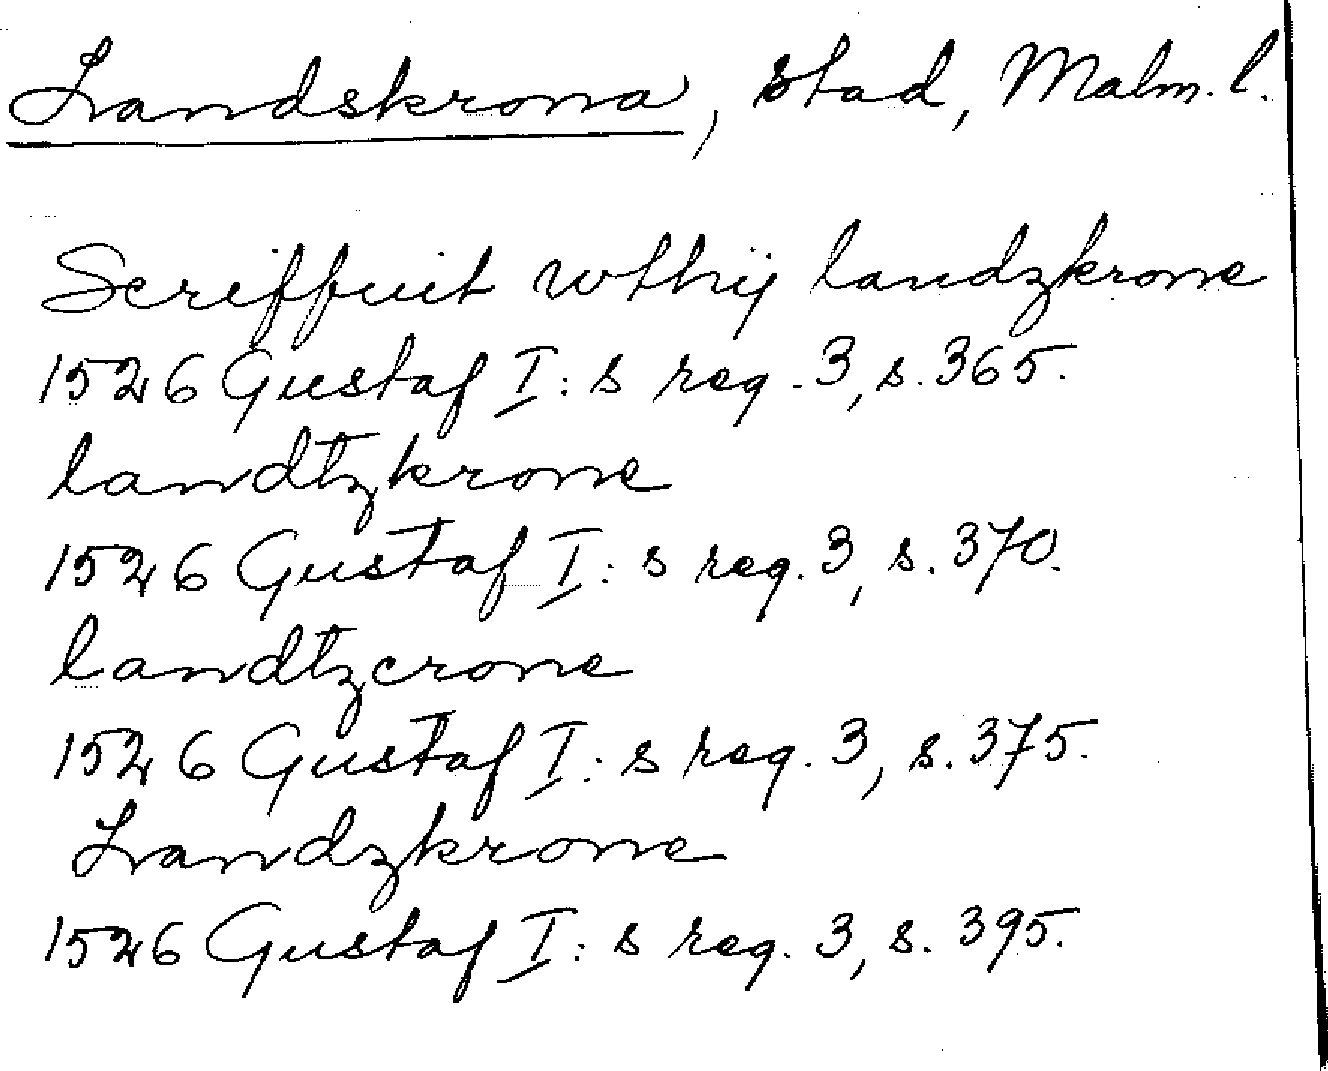 Landskrona, stad, Malm. l.
Scriffuit wthij landzkrone
1526 Gustaf I:s reg. 3, s. 365.
landtzkrone
1526 Gustaf I:s reg. 3, s. 370.
landtzcrone
1526 Gustaf I:s reg. 3, s. 375.
Landzkrone
1526 Gustaf I:s reg. 3, s. 395.